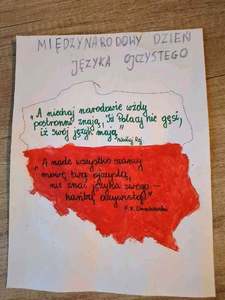 MIĘDZYNARODOWY DZIEŃ
JĘZYKA OJCZYSTEGO
„A niechaj narodowie wżdy
postronni znają, iż Polacy nie gęsi,
iż swój język mają"
Mikołaj Rej
„A nade wszystko szanuj
mowę twą ojczystą,
nie znać języka swego –
hańbą oczywistą."
F. K. Dmochowski